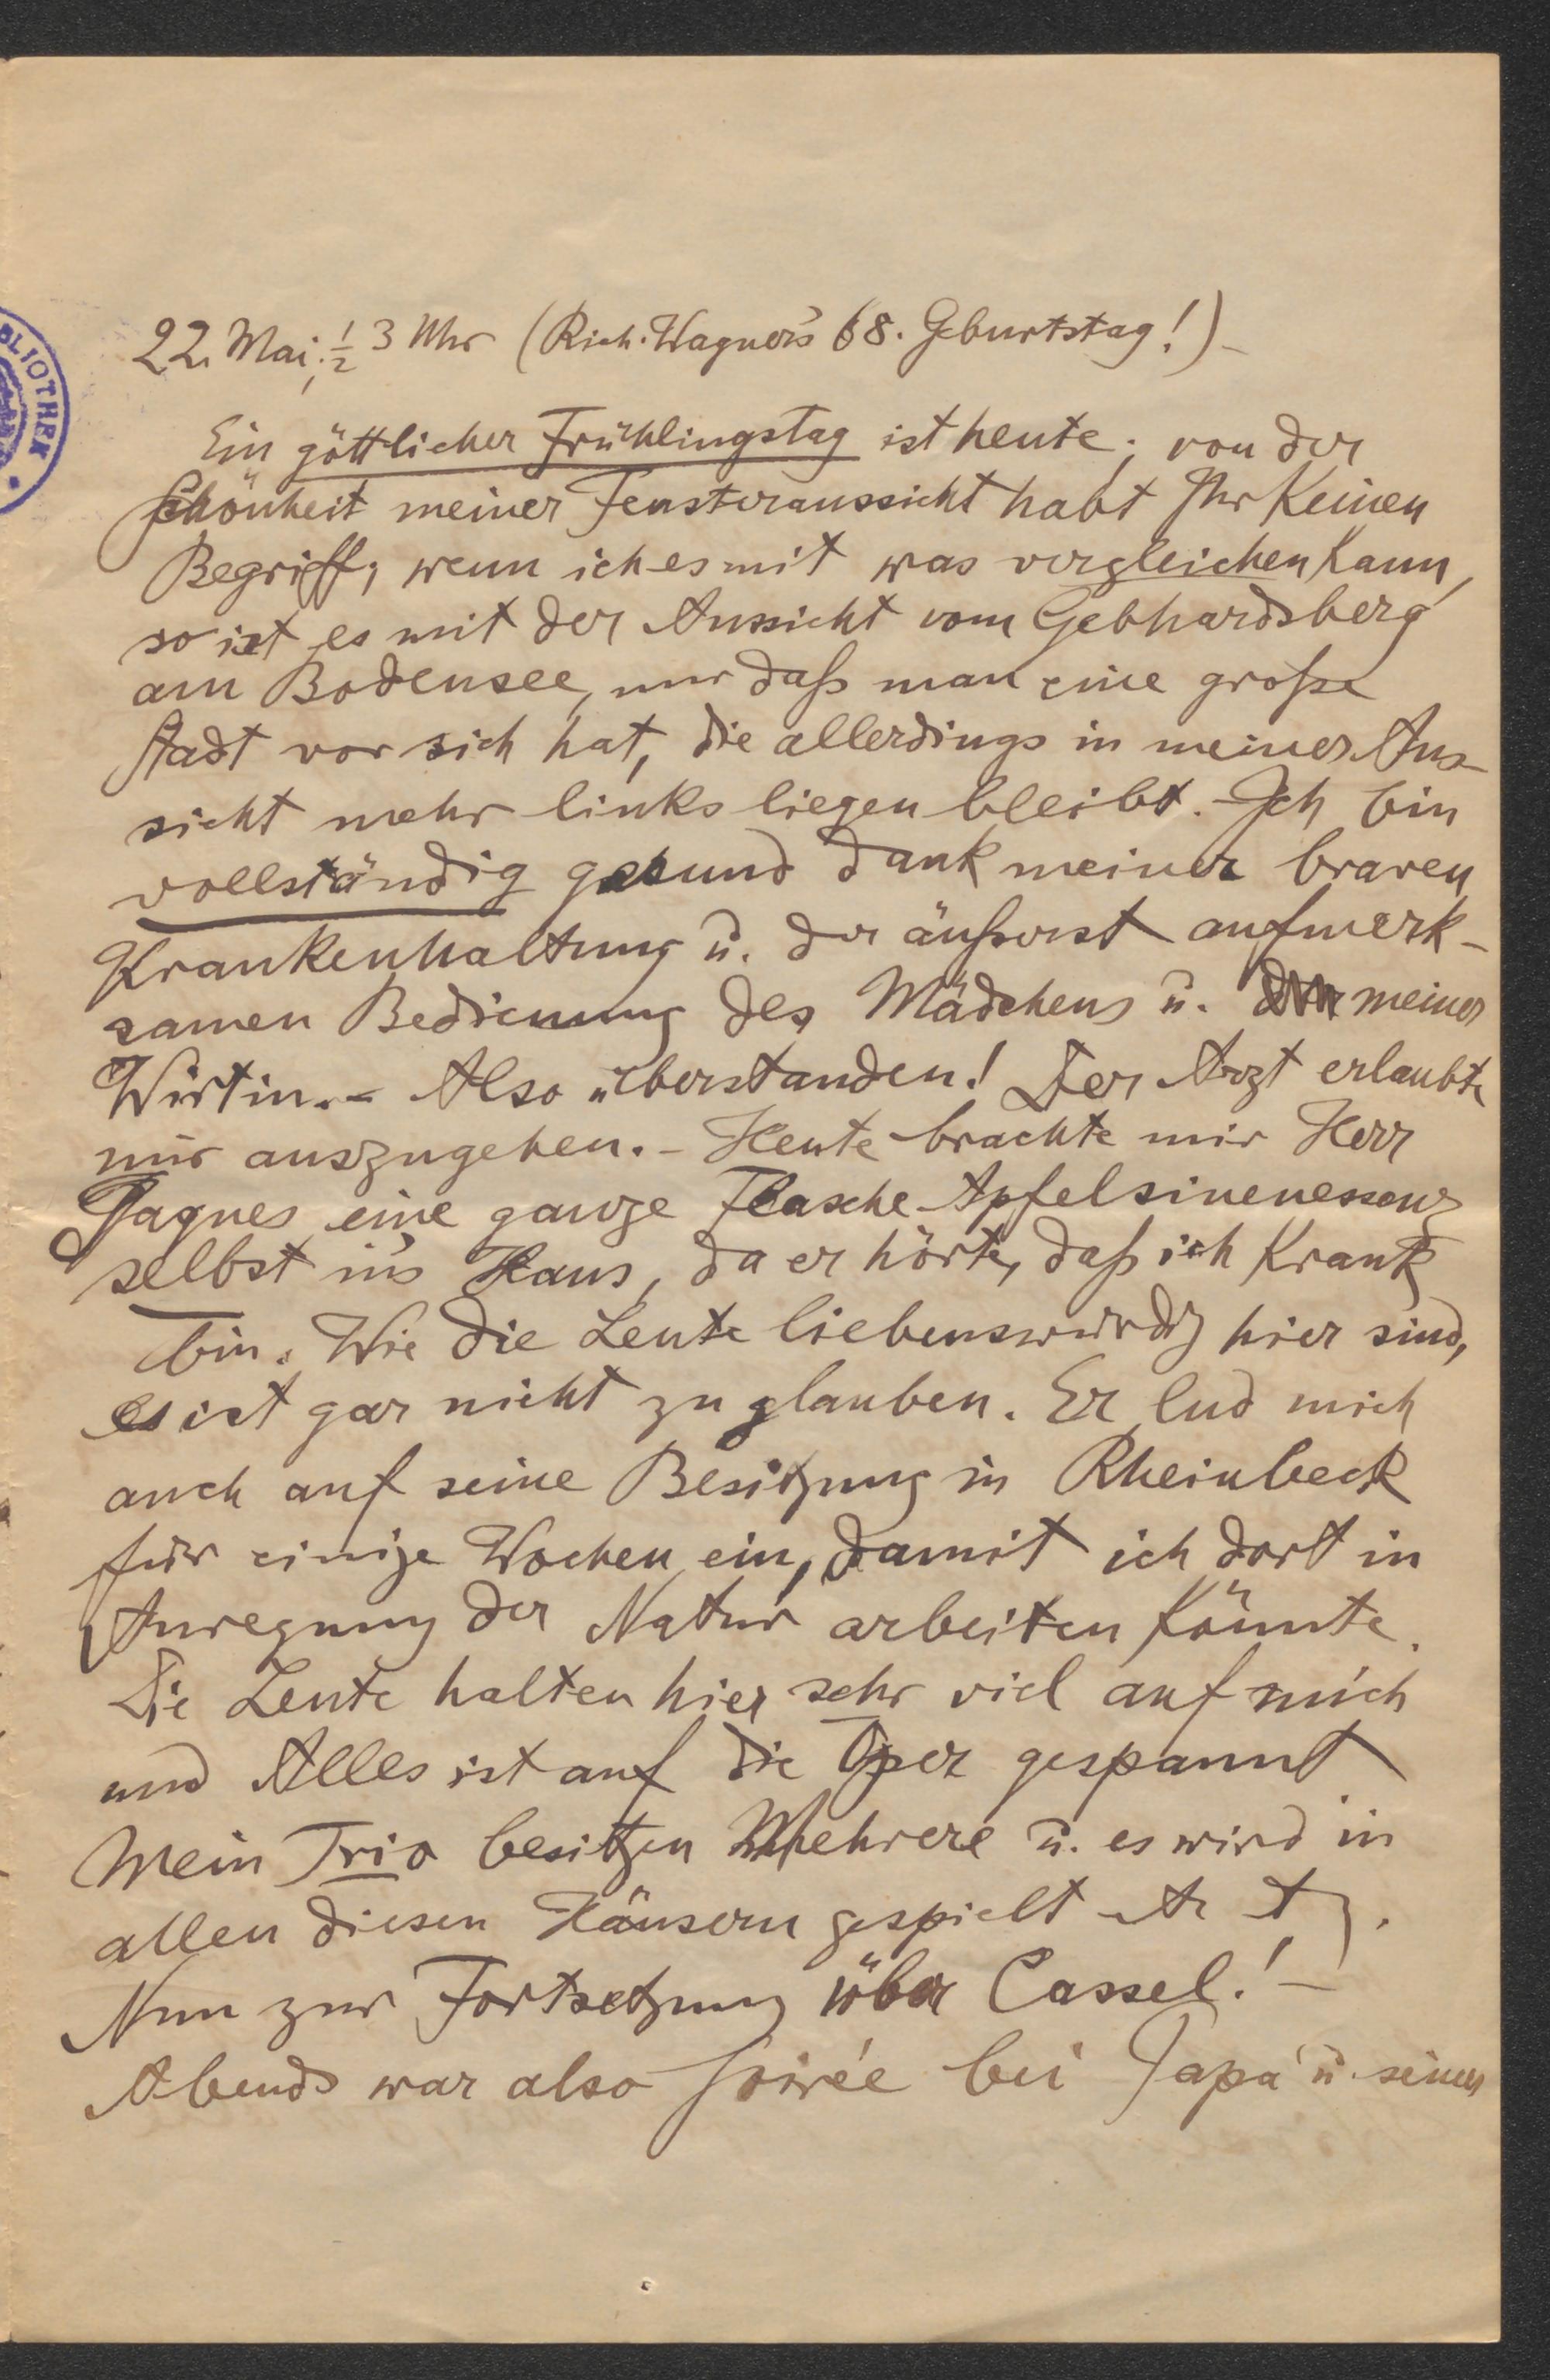 BLIOTHEK
22. Mai, ½ 3 Uhr (Rich. Wagner's 68. Geburtstag!) –
Ein göttlicher Frühlingstag ist heute; von der
Schönheit meiner Fensteraussicht habt Ihr keinen
Begriff; wenn ich es mit was vergleichen kann,
so ist es mit der Aussicht vom Gebhardsberg
am Bodensee, nur daß man eine große
Stadt vor sich hat, die allerdings in meiner Aus-
sicht mehr links liegen bleibt. – Ich bin
vollständig gesund dank meiner braven
Krankenhaltung u. der äußerst aufmerk-
samen Bedienung des Mädchens u. meiner
Wirtin. – Also überstanden! Der Arzt erlaubte
mir auszugehen. – Heute brachte mir Herr
eine ganze Flasche Apfelsinenessenz
selbst in's Haus, da er hörte, daß ich krank
bin. Wie die Leute liebenswürdig hier sind,
es ist gar nicht zu glauben. Er lud mich
auch auf seine Besitzung in Rheinbeck
für einige Wochen ein, damit ich dort in
Anregung der Natur arbeiten könnte.
Die Leute halten hier sehr viel auf mich
und Alles ist auf die Oper gespannt
Mein Trio besitzen Mehrere u. es wird in
allen diesen Häusern gespielt
Nun zur Fortsetzung über Cassel! –
Abends war also Soirée bei Papa u. seiner